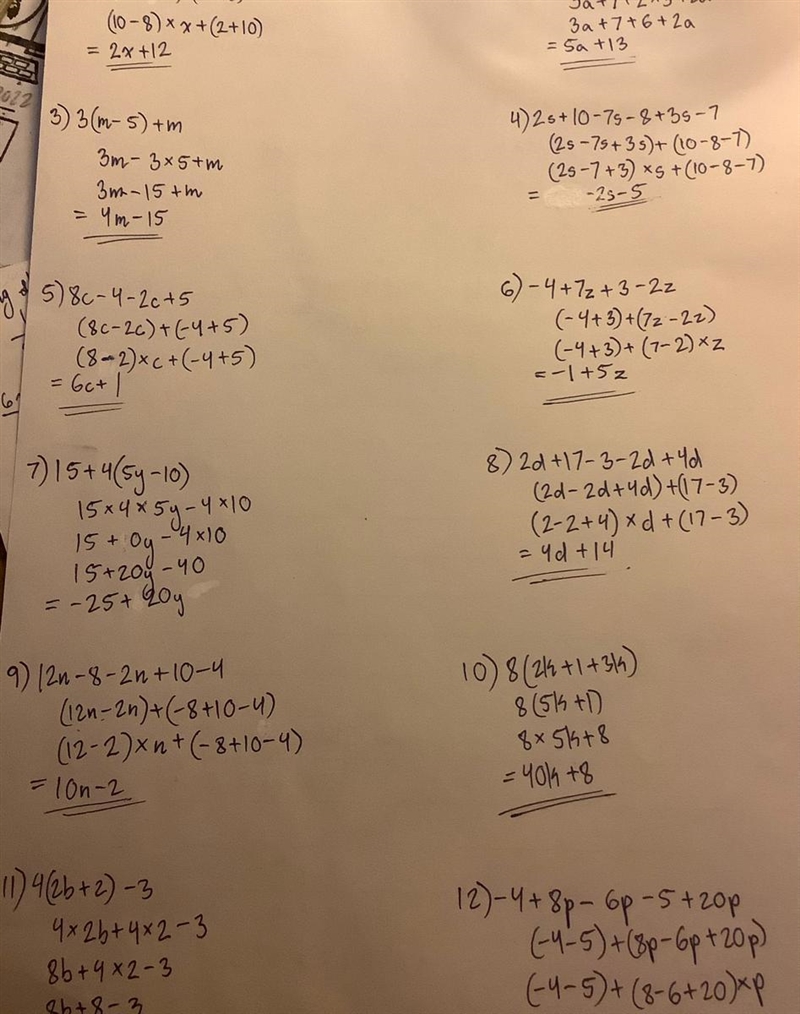 (10-8)×x+(2+10)
= 2x+12
3a+7+6+2a
= 5a+13
3) 3(m-5)+m
3m-3×5+m
3m-15+m
= 4m-15
4) 2s+10-7s-8+3s-7
(2s-7s+3s)+(10-8-7)
(2s-7+3)×s+(10-8-7)
= -2s-5
5) 8c-4-2c+5
(8c-2c)+(-4+5)
(8-2)×c+(-4+5)
= 6c+1
6) -4+7z+3-2z
(-4+3)+(7z-2z)
(-4+3)+(7-2)×z
= -1+5z
7) 15+4(5y-10)
15×4×5y-4×10
15+0y-4×10
15+20y-40
= -25+20y
8) 2d+17-3-2d+4d
(2d-2d+4d)+(17-3)
(2-2+4)×d+(17-3)
= 4d+14
9) 12n-8-2n+10-4
(12n-2n)+(-8+10-4)
(12-2)×n+(-8+10-4)
= 10n-2
10) 8(2k+1+3k)
8(5k+1)
8×5k+8
= 40k+8
11) 4(2b+2)-3
4×2b+4×2-3
8b+4×2-3
8b+8-3
12) -4+8p-6p-5+20p
(-4-5)+(8p-6p+20p)
(-4-5)+(8-6+20)×p